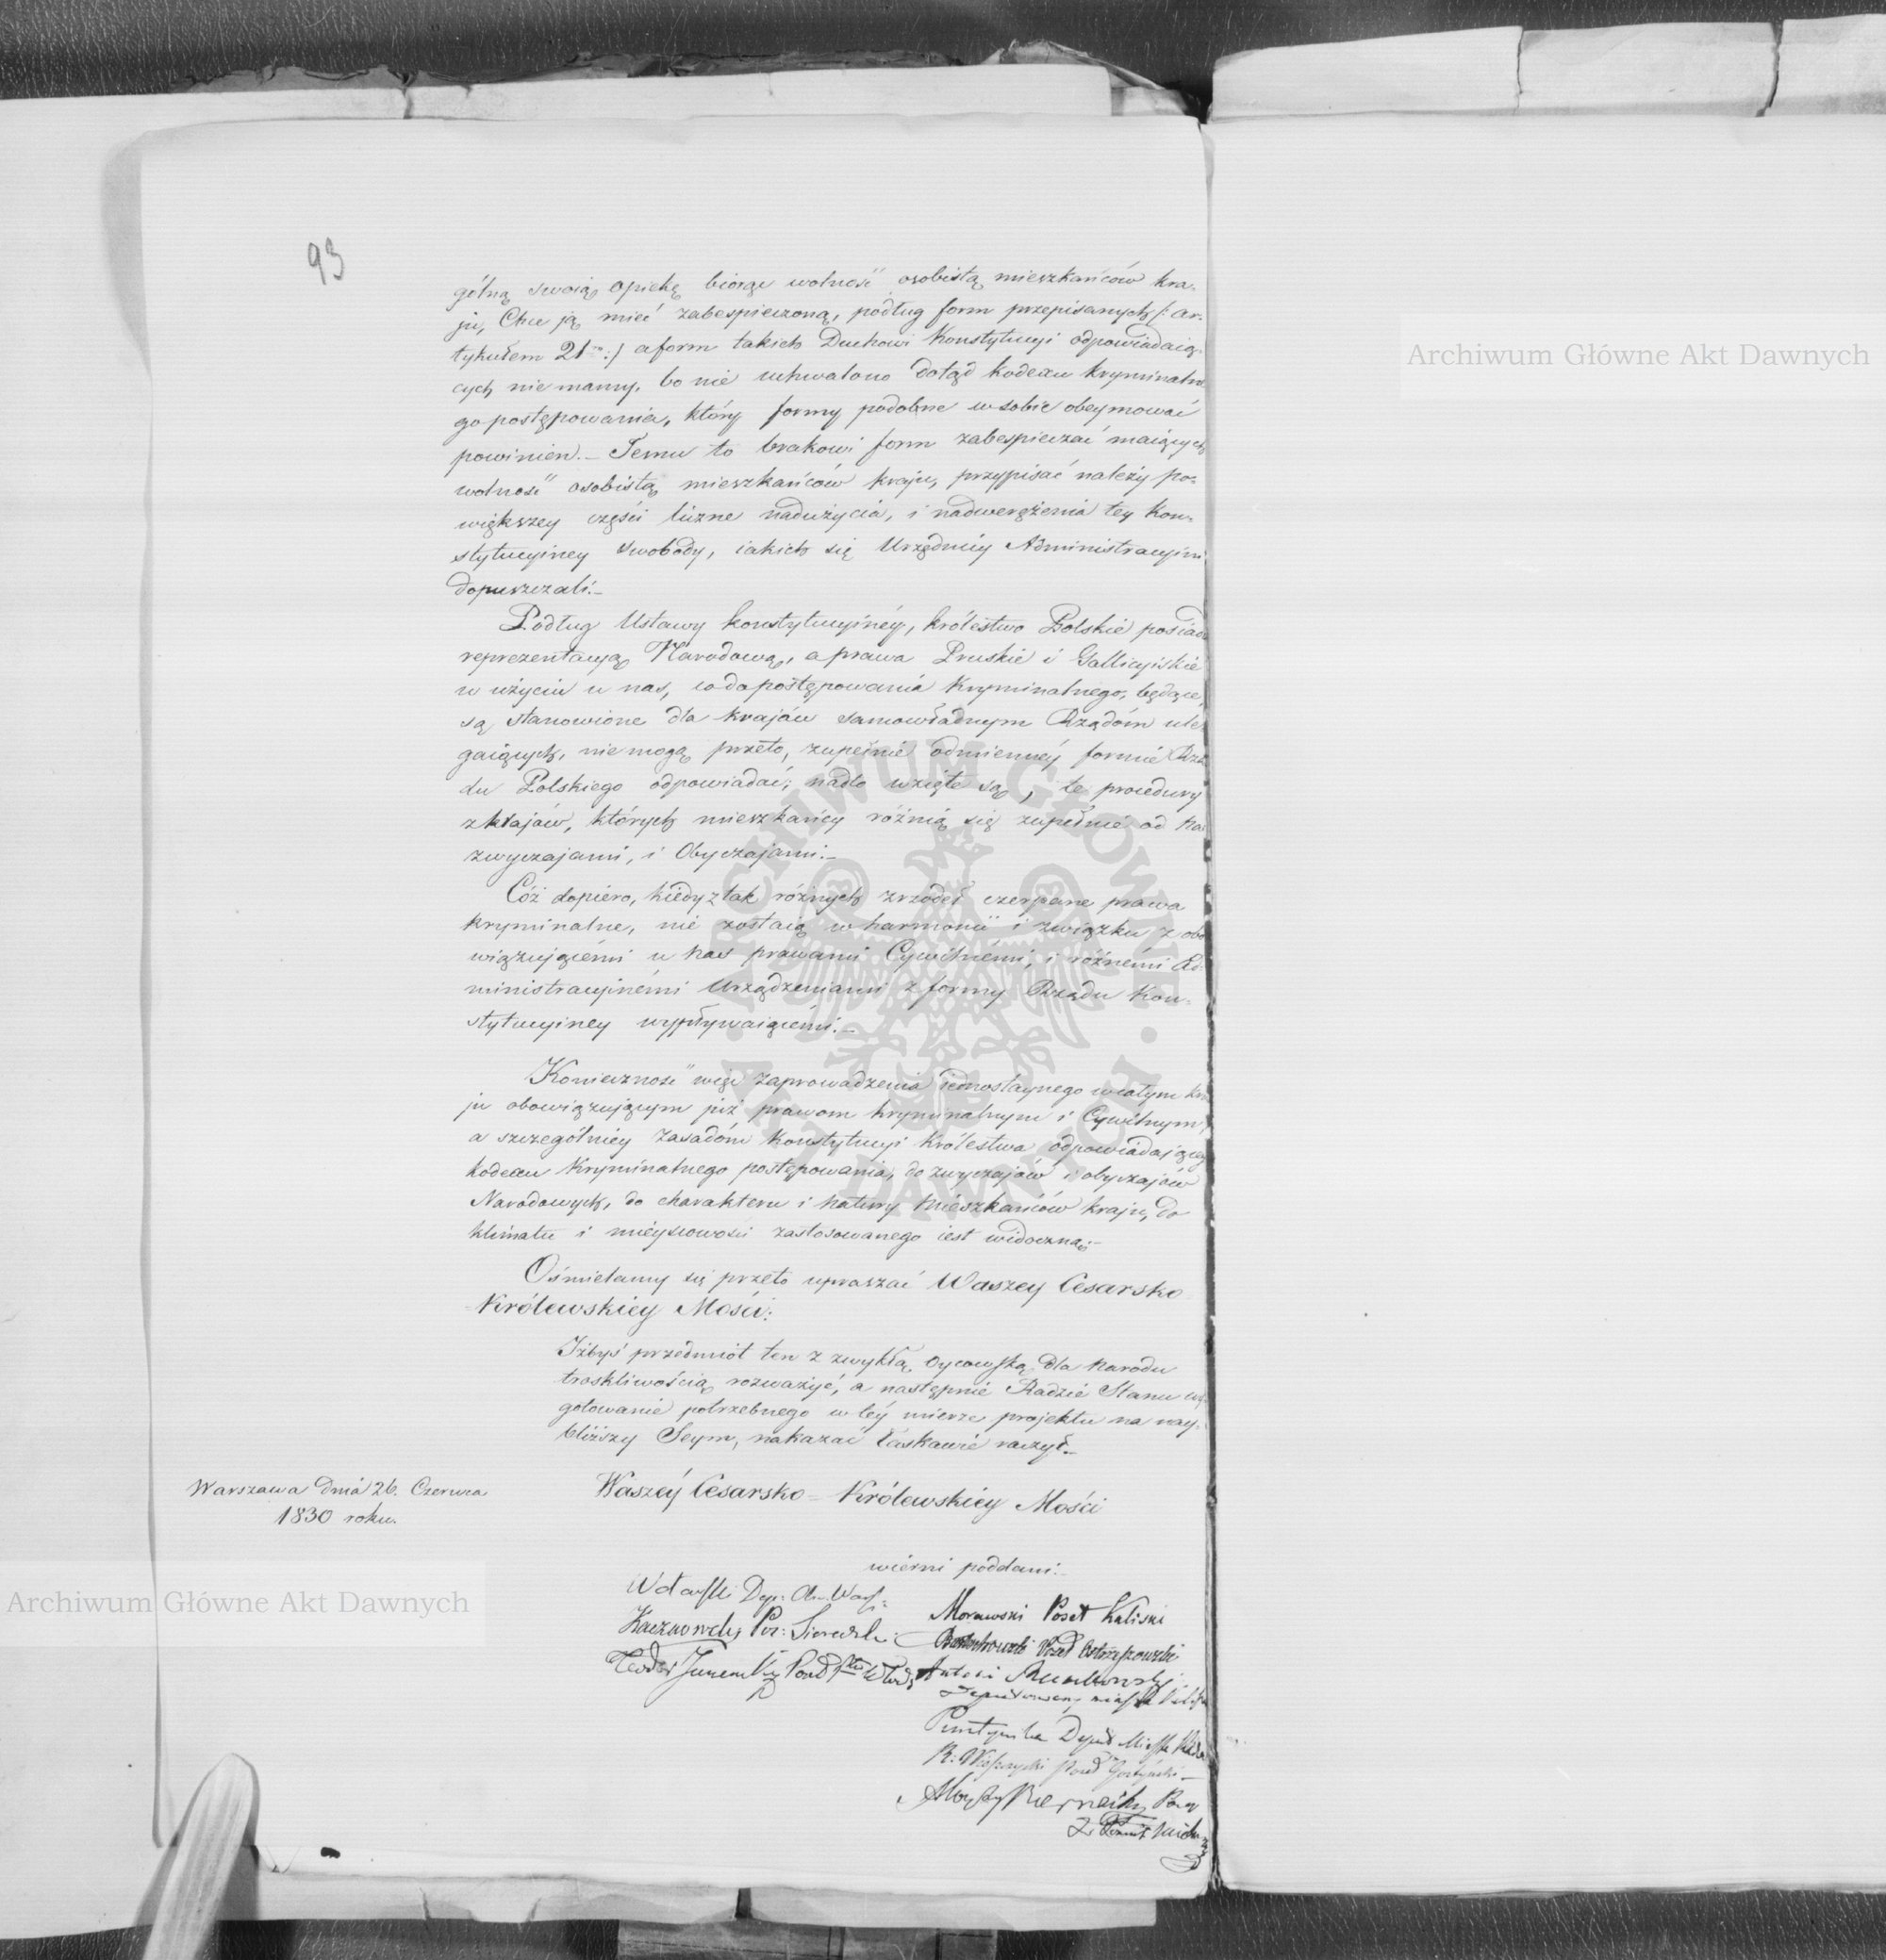 93
gólną swoią opiekę biorąc wolność osobistą mieszkańców kra-
ju, Chce ją mieć zabespieczoną, podług form przepisanych /: ar-
tykułem 21m :/ a form takich Duchowi Konstytucyi odpowiadaią-
cych nie mamy, bo nie uchwalono dotąd kodexu kryminalne
go postępowania, który formy podobne w sobie obeymować
powinien.– Temu to brakowi form zabespieczać maiących
wolność osobistą mieszkańców kraju, przypisać należy po-
większey części liczne nadużycia, i nadwerężenia tey kon-
stytucyiney swobody, iakich się Urzędnicy Administracyini
dopuszczali.–
Podług Ustawy konstytucyinéy, królestwo Polskie posiada
reprezentacyą Narodową, a prawa Pruskie i Gallicyiskie
w użyciu u nas, co do postępowania kryminalnego, będące,
są stanowione dla kraiów samowładnym Rządóm ule-
gaiących, nie mogą przeto, zupełnie odmiennéy formie Rzą
du Polskiego odpowiadać; nadto wzięte są, te procedury
z kraiów, których mieszkańcy różnią się zupełnie od nas
zwyczajami, i Obyczajami.–
Cóż dopiero, kiedy z tak różnych zrzódeł czerpane prawa
kryminalne, nie zostaią w harmonii i związku z obo
wiązującémi u nas prawami Cywilnémi, i różnémi Ad-
ministracyinémi Urządzeniami z formy Rządu Kon-
stytucyiney wypływaiącémi.–
Konieczność więc zaprowadzenia iednostaynego w całym kra
ju obowiązującym już prawom kryminalnym i Cywilnym,
a szczególniey zasadóm Konstytucyi Królestwa odpowiadającego
kodexu Kryminalnego postępowania, do zwyczajów i obyczajów
Narodowych, do charakteru i natury mieszkańców kraju, do
klimatu i mieyscowości zastosowanego iest widoczną.–
Ośmielamy się przeto upraszać Waszey Cesarsko
Królewskiey Mości:
Iżbyś przedmiot ten z zwykłą Oycowską dla Narodu
troskliwością rozważyć, a następnie Radzie Stanu wy
gotowanie potrzebnego w téy mierze projektu na nay-
bliższy Seym, nakazać łaskawie raczył.–
Warszawa dnia 26. Czerwca
1830 roku.
Waszéy Cesarsko = Królewskiéy Mości
wierni poddani:–
Morawski Poseł Kaliski
Antoni
Deputowany miasta
Archiwum Główne Akt Dawnych
Archiwum Główne Akt Dawnych
ARCHIWUM GŁÓWNE AKT DAWNYCH